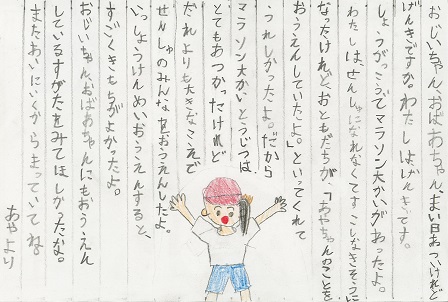 おじいちゃん、おばあちゃんまい日あついけれど
げんきですか。わたしはげんきです。
しょうがっこうでマラソン大かいがあったよ。
わたしはせんしゅになれなくてすこしなきそうに
なったけれど、おともだちが、「あやちゃんのことを
おうえんしていたよ。」といってくれて
うれしかったよ。だから
マラソン大かいとうじつは、
とてもあつかったけれど
だれよりも大きなこえで
せんしゅのみんなをおうえんしたよ。
いっしょうけんめいおうえんすると、
すごくきもちがよかったよ。
おじいちゃん、おばあちゃんにもおうえん
しているすがたをみてほしかったな。
またあいにいくからまっていてね。
あやより